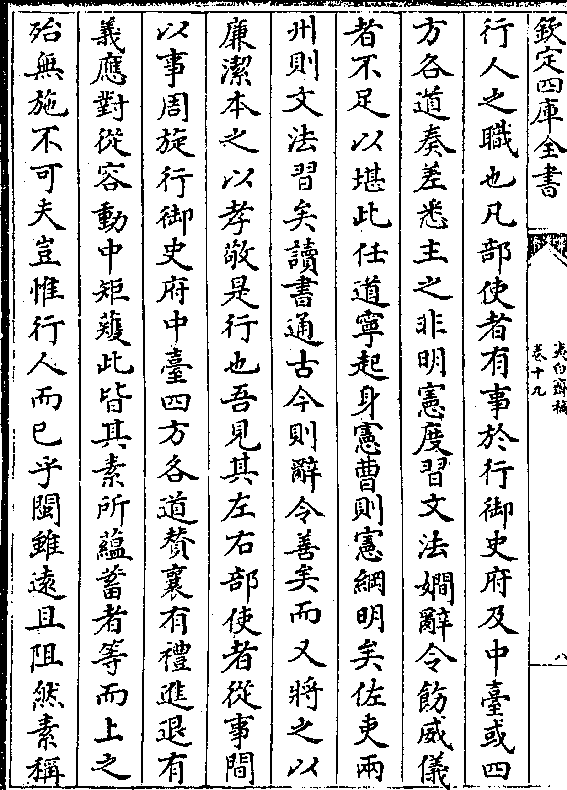 欽定四庫全書
夷白齋稿
卷十九
八
行人之職也凡部使者有事於行御史府及中臺或四
方各道奏差悉主之非明憲度習文法嫺辭令飭威儀
者不足以堪此任道寧起身憲曹則憲綱明矣佐吏兩
州則文法習矣讀書通古今則辭令善矣而又將之以
廉潔本之以孝敬是行也吾見其左右部使者從事間
以事周旋行御史府中臺四方各道贊襄有禮進退有
義應對從容動中矩矱此皆其素所蘊蓄者等而上之
殆無施不可夫豈惟行人而已乎閩雖遠且阻然素稱